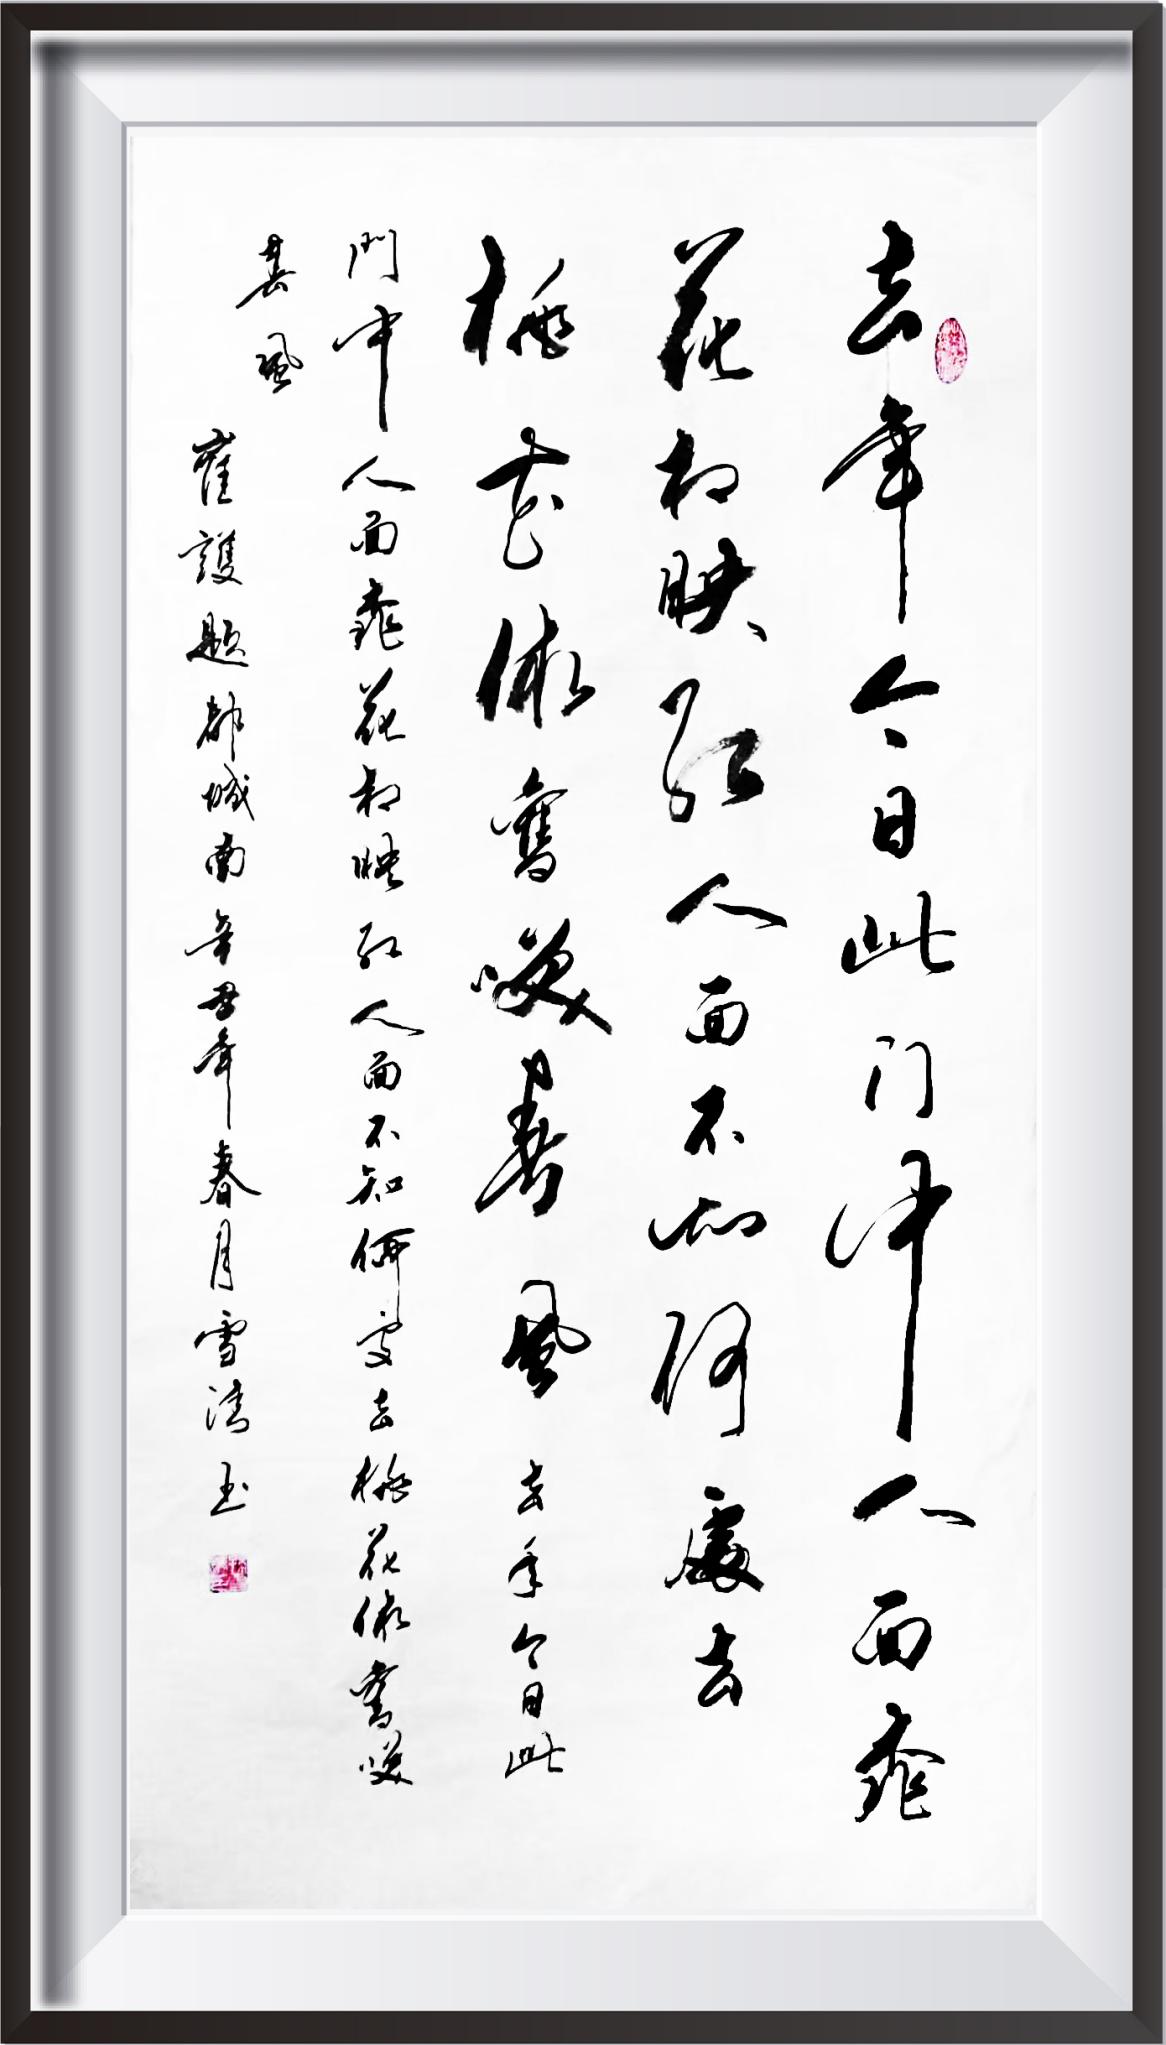 去年今日此门中人面桃
花相映红人面不知何處去
桃花依舊笑春風 去年今日此
門中人面桃花相映红人面不知何處去桃花依舊笑
春風
崔護题都城南辛丑年春月雪清